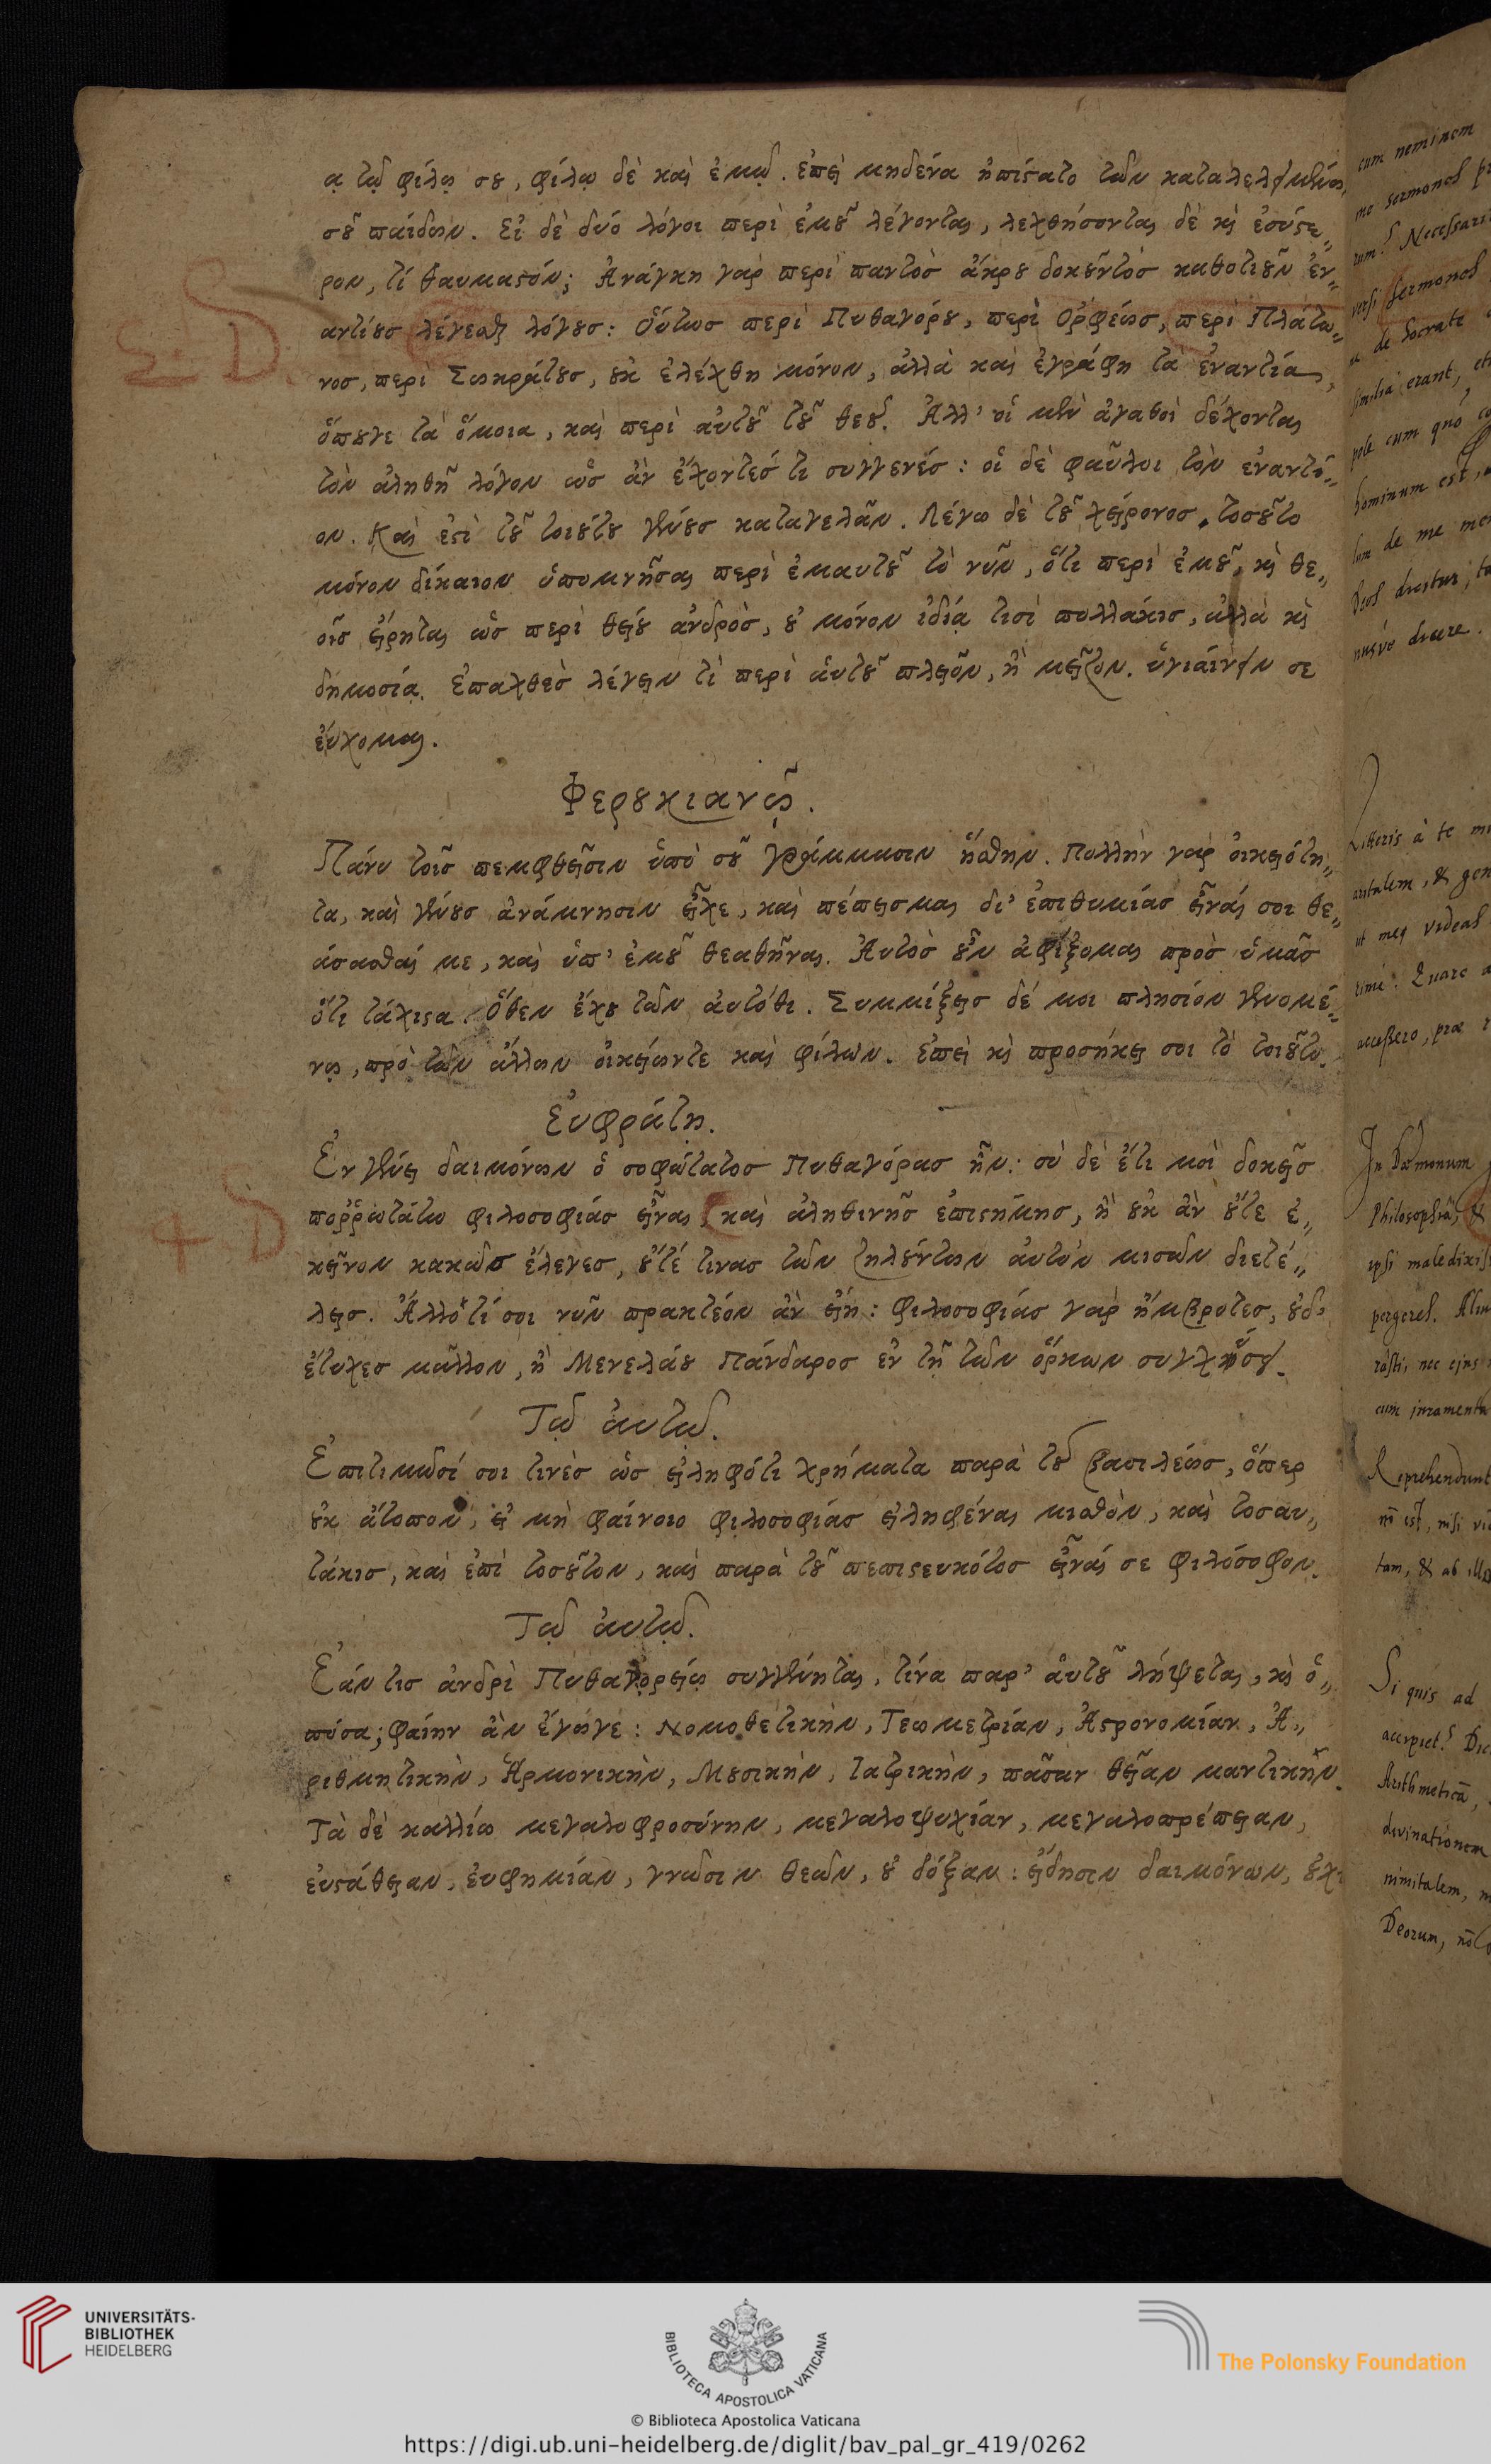 ᾳ τῷ φίλῳ σου, φίλῳ δὲ καὶ ἐμῷ. ἐπεὶ μηδένα ἠπίστατο τῶν καταλελειμμένων
σοῦ παίδων. Εἰ δὲ δυό λόγοι περὶ ἐμοῦ λέγονται, λεχθήσονται δὲ καὶ ἐσύστε„
ρον, τί θαυμαστόν; Ἀνάγκη γὰρ περὶ παντὸς ἄκρου δοκοῦντὸς καθοτιοῦν ἐν„
αντίους λέγεσθαι λόγους: Οὕτως περὶ Πυθαγόρου, περὶ Ορφέως, περὶ Πλάτω„
νος, περὶ Σωκράτους, οὐκ ἐλέχθη μόνον, ἀλλὰ καὶ ἐγράφη τὰ ἐναντία,
ὅπουγε τὰ ὅμοια, καὶ περὶ αὐτοῦ τοῦ θεοῦ. Ἀλλ' οἱ μὲν ἀγαθοὶ δέχονται
τὸν ἀληθῆ λόγον ὡς ἂν ἔχοντές τι συγγενές: οἱ δὲ φαῦλοι τὸν ἐναντί„
ον. Καὶ ἐστὶ τοῦ τοιούτου γένους καταγελᾶν. Λέγω δὲ τοῦ χείρονος. τοσοῦτο
μόνον δίκαιον ὑπομνῆσαι περὶ ἐμαυτοῦ τὸ νῦν, ὅτι περὶ ἐμοῦ, καὶ θε„
οῖς εἴρηται ὡς περὶ θείου ἀνδρὸς, οὐ μόνον ἰδίᾳ τισὶ πολλάκις, ἀλλὰ καὶ
δημοσίᾳ. Ἐπαχθὲς λέγειν τὶ περὶ αὑτοῦ πλεῖον, ἢ μεῖζον. ὑγιαίνειν σε
εὔχομαι.
Φερουκιανῷ.
Πάνυ τοῖς πεμφθεῖσιν ὑπὸ σοῦ γράμμασιν ἥσθην. Πολλὴν γὰρ οἰκειότη„
τα, καὶ γένους ἀνάμνησιν εἶχε, καὶ πέπεισμαι δι' ἐπιθυμίας εἶναί σοι θε„
άσασθαί με, καὶ ὑπ' ἐμοῦ θεαθῆναι. Αὐτὸς οὖν ἀφίξομαι πρὸς ὑμᾶς
ὅτι τάχιστα. Ὅθεν ἔχου τῶν αὐτόθι. Συμμίξεις δέ μοι πλησίον γενομέ„
νῳ, πρὸ τῶν ἄλλων οἰκείωντε καὶ φίλων. ἐπεὶ καὶ προσήκει σοι τὸ τοιοῦτο.
Εὐφράτῃ.
Ἐν γένει δαιμόνων ὁ σοφώτατος Πυθαγόρας ἦν: σὺ δὲ ἔτι μοὶ δοκεῖς
ποῤῥωτάτω φιλοσοφίας εἶναι, καὶ ἀληθινῆς ἐπιστήμης, ἢ οὐκ ἂν οὔτε ἐ„
κεῖνον κακῶς ἔλεγες, οὔτέ τινας τῶν ζηλούντων αὐτὸν μισῶν διετέ„
λεις. Ἄλλό τί σοι νῦν πρακτέον ἂν εἴη: φιλοσοφίας γὰρ ἤμβροτες, οὐδ'
ἔτυχες μᾶλλον, ἢ Μενελάου Πάνδαρος ἐν τῇ τῶν ὅρκων συγχύσει.
Τῷ αὐτῷ.
Ἐπιτιμῶσί σοι τινὲς ὡς εἰληφότι χρήματα παρὰ τοῦ βασιλέως, ὅπερ
οὐκ ἄτοπον, εἰ μὴ φαίνοιο φιλοσοφίας εἰληφέναι μισθὸν, καὶ τοσαυ„
τάκις, καὶ ἐπὶ τοσοῦτον, καὶ παρὰ τοῦ πεπιστευκότος εἶναί σε φιλόσοφον.
Τῷ αὐτῷ.
Ἐάν τις ἀνδρὶ Πυθαγορείῳ συγγένηται, τίνα παρ' αὐτοῦ λήψεται, καὶ ὁ„
πόσα; φαίην ἂν ἔγωγε: Νομοθετικὴν, Γεωμετρίαν, Ἀστρονομίαν, Ἀ„
ριθμητικὴν, Ἁρμονικὴν, Μουσικὴν, Ἰατρικὴν, πᾶσαν θείαν μαντικὴν.
Τὰ δὲ καλλίω μεγαλοφροσύνην, μεγαλοψυχίαν, μεγαλοπρέπειαν,
εὐστάθειαν, εὐφημίαν, γνῶσιν θεῶν, οὐ δόξαν: εἴδησιν δαιμόνων, οὐχὶ
cum neminem
me sermones
rum? Necessari
versi sermones
de Socrate
similia erant,
pole cum quo
hominum est,
tum de me
Deos dicitur,
nusve dicere.
Litteris à te
aritatem, &
ut meq videas
timè. Quare
accessero, prae
In Dæmonum
Philosophiâ, &
ipsi maledixis
pergeres.
rasti, nec ejus
cum juramenta
Reprehendunt
est, nisi
tam, & ab
Si quis ad
accipiet?
Arithmeticã,
divinationem
nimitatem,
Deorum,
UNIVERSITÄTS-
BIBLIOTHEK
HEIDELBERG
BIBLIOTECA APOSTOLICA VATICANA
The Polonsky Foundation
© Biblioteca Apostolica Vaticana
https://digi.ub.uni-heidelberg.de/diglit/bav_pal_gr_419/0262